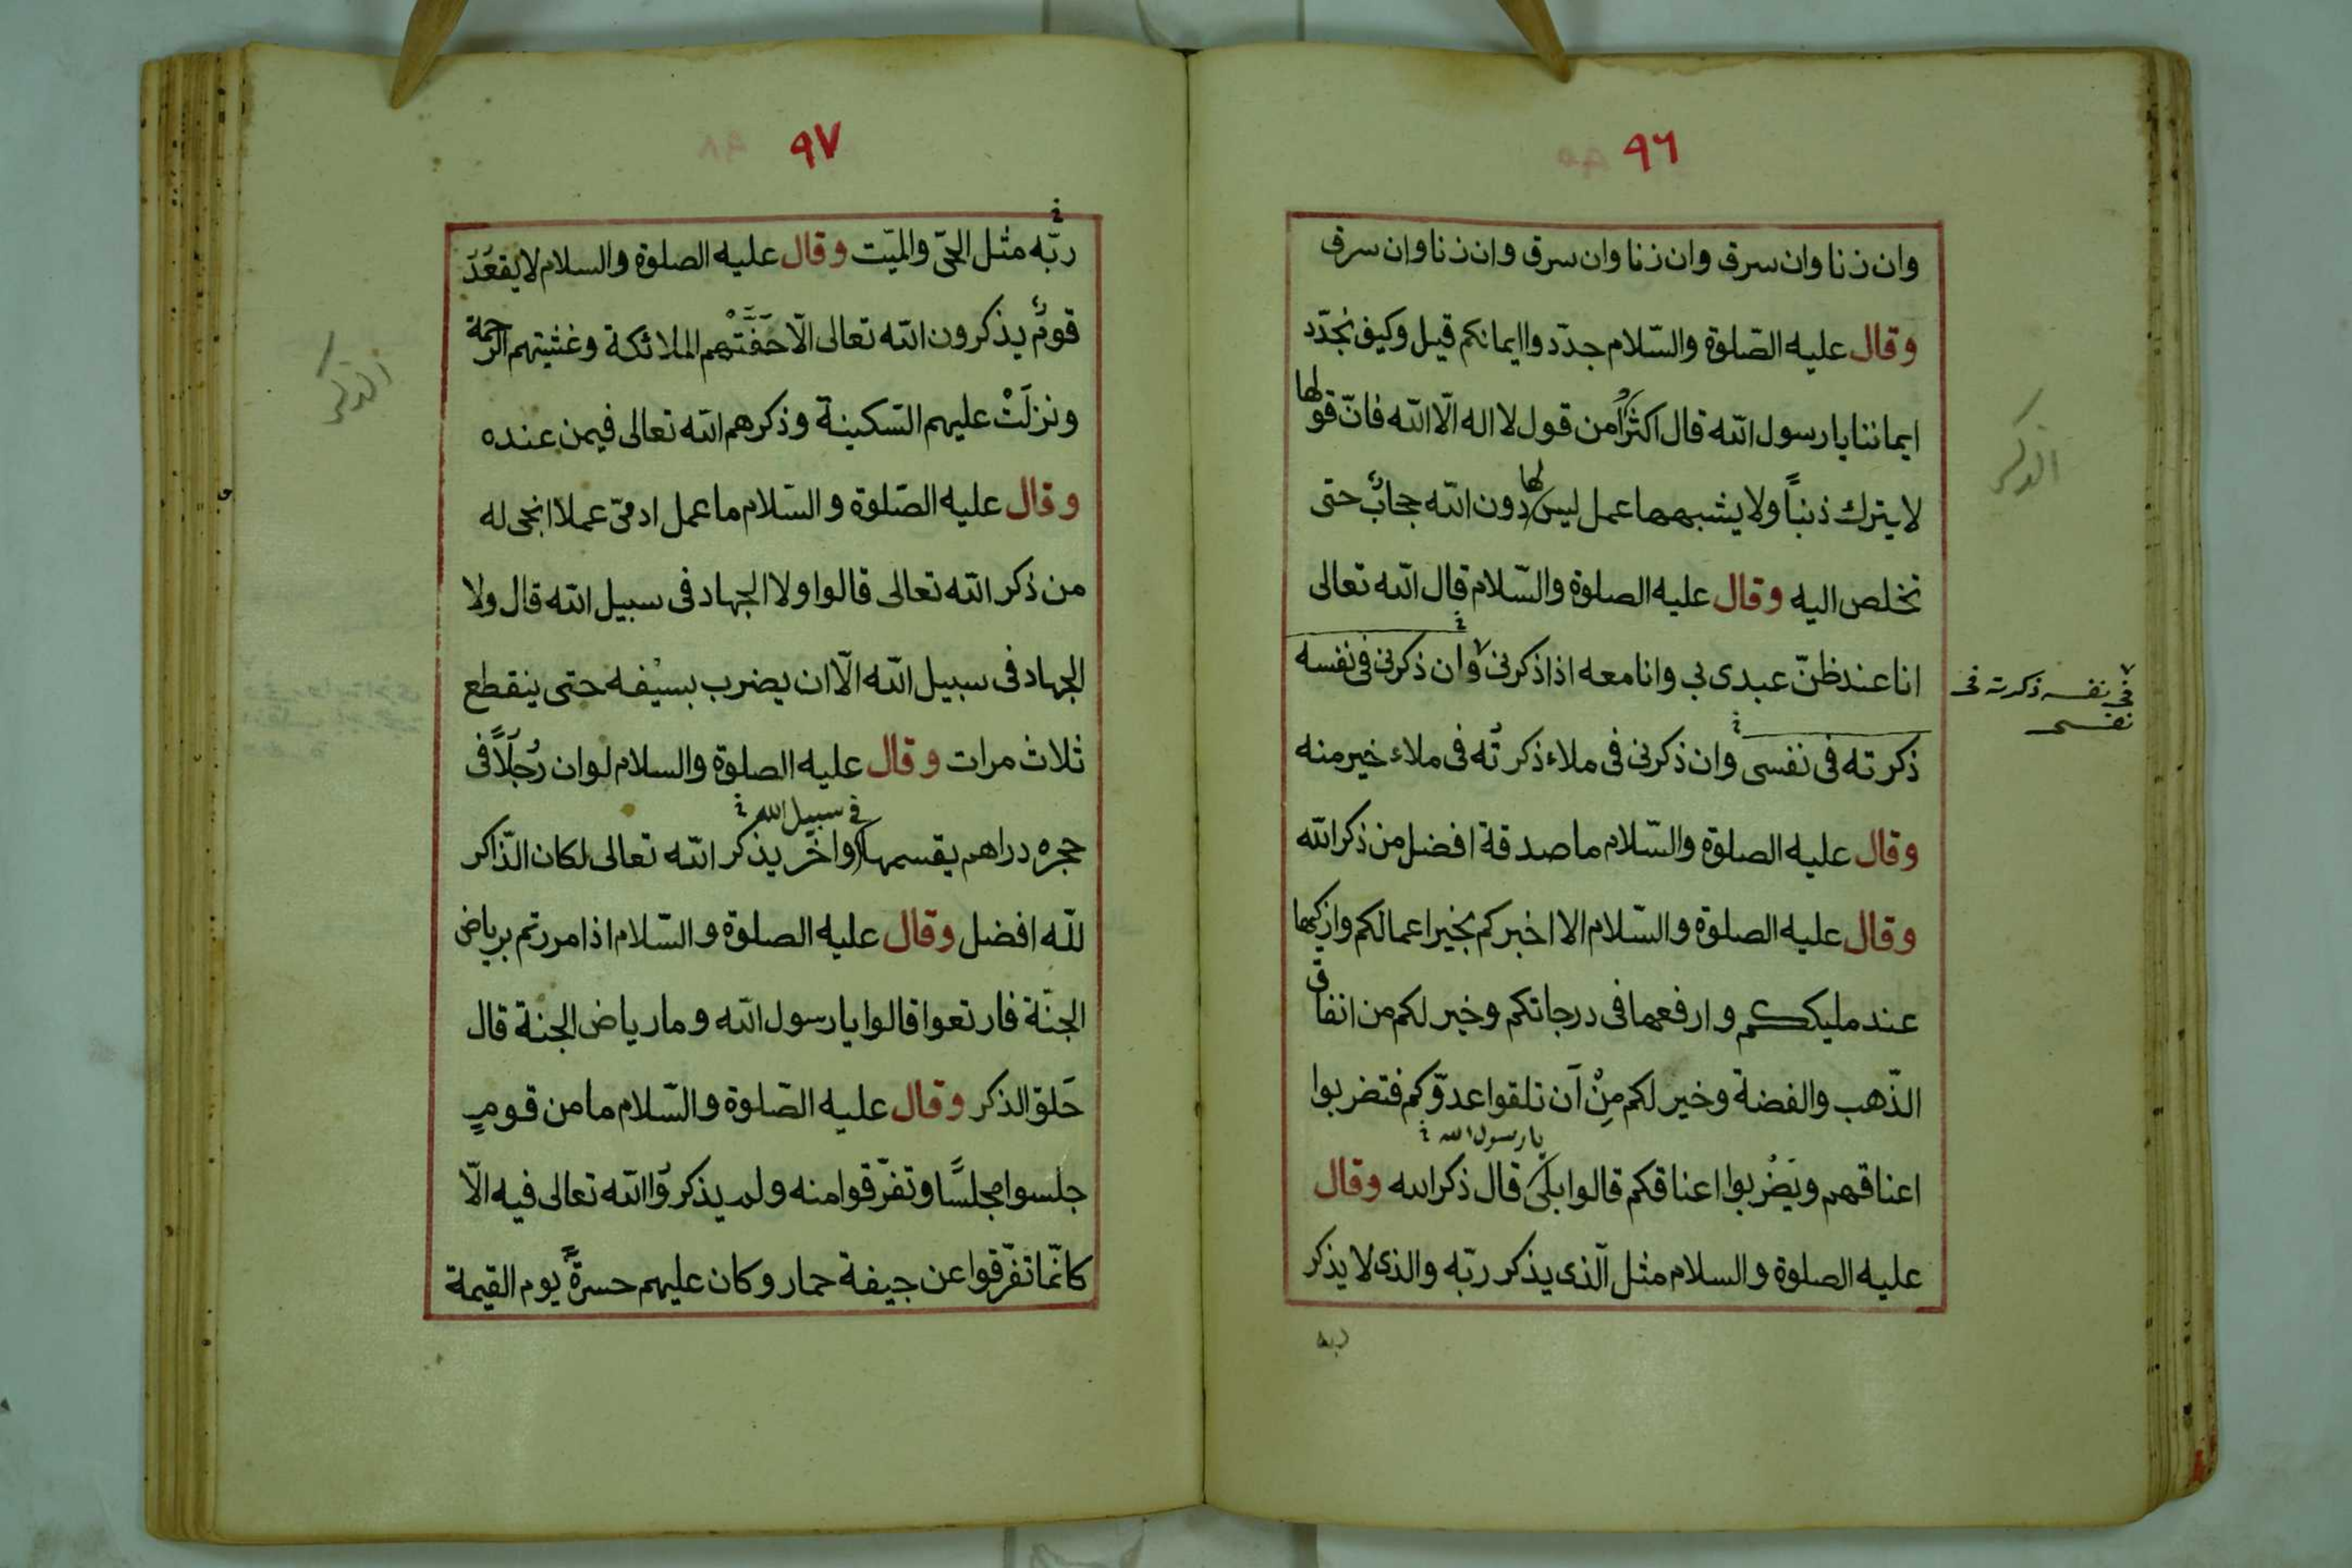 ٩٦
وان زنا وان سرق وان زنا وان سرق وان زنا وان سرق
وقال عليه الصّلوة والسّلام جدّدوا ايمانكم قيل وكيف نجدّد
ايماننا يا رسول الله قال اكثرُوا من قول لا اله الّا الله فانّ قولها
لا يترك ذنباً ولا يشبهها عمل ليس لها دون الله حجابٌ حتى
تخلص اليه وقال عليه الصلوة والسّلام قال الله تعالى
انا عند ظنّ عبدى بي وانا معه اذا ذكرنى وان ذكرنى فى نفسه
فى نفسه ذكرته فى
نفسى
ذكرته فى نفسى وان ذكرنى فى ملاء ذكرتُه فى ملاء خير منه
وقال عليه الصلوة والسّلام ما صدقة افضل من ذكر الله
وقال عليه الصلوة والسّلام الا اخبركم بخير اعمالكم وازكيها
عند مليككم وارفعها فى درجاتكم وخير لكم من انفاق
الذّهب والفضة وخير لكم مِنْ اَن تلقوا عدوّكم فتضربوا
يا رسول الله
اعناقهم ويَضْربوا اعناقكم قالوا بلى قال ذكر الله وقال
عليه الصلوة والسلام مثل الّذى يذكر ربّه والذى لا يذكر
ربه
الذكر
٩٧
ربّه مثل الحىّ والميّت وقال عليه الصلوة والسلام لا يقعُدَ
قومٌ يذكرون الله تعالى الّا حَفَّتْهم الملائكة وغشيتهم الرحمة
ونزلَتْ عليهم السّكينة وذكرهم الله تعالى فيمن عنده
وقال عليه الصّلوة والسّلام ما عمل ادمىّ عملا انجى له
من ذكر الله تعالى قالوا ولا الجهاد فى سبيل الله قال ولا
الجهاد فى سبيل الله الّا ان يضرب بسيْفه حتى ينقطع
ثلاث مرات وقال عليه الصلوة والسلام لو ان رُجلاً فى
فى سبيل الله
حجره دراهم يقسمها واخر يذكر الله تعالى لكان الذّاكر
للّه افضل وقال عليه الصلوة والسّلام اذا مررتم برياض
الجنّة فارتعوا قالوا يا رسول الله وما رياض الجنة قال
حَلق الذكر وقال عليه الصّلوة والسّلام ما من قومٍ
جلسوا مجلسًا وتفرّقوا منه ولم يذكروُا الله تعالى فيه الّا
كانّما تفرّقوا عن جيفة حمار وكان عليهم حسرةً يوم القيمة
الذكر